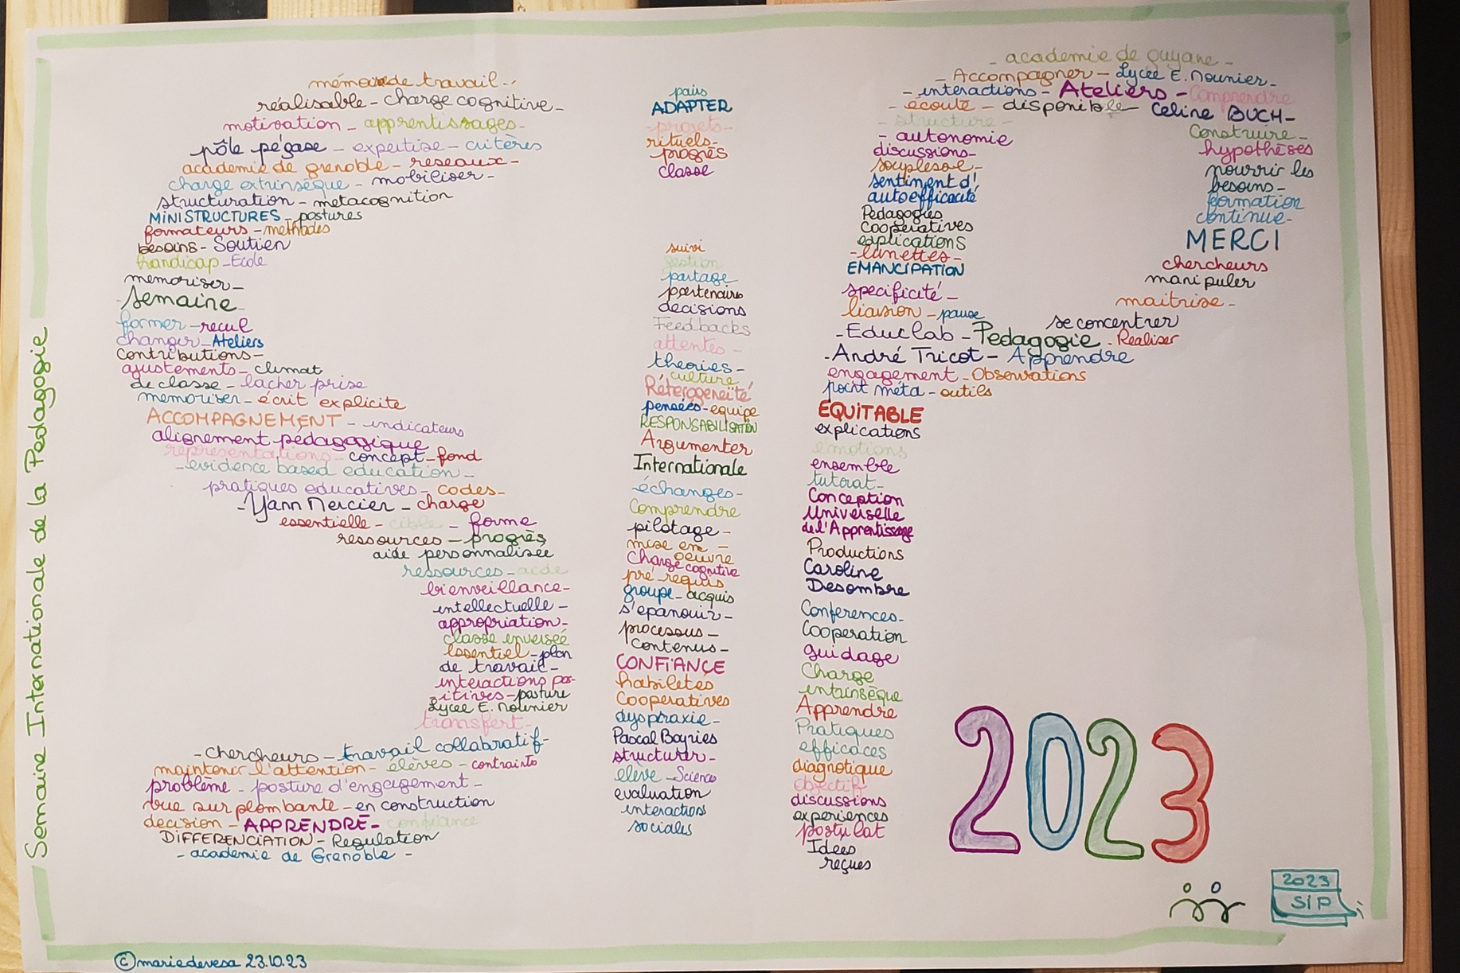 Semaine Internationale de la Pédagogie
mémoire de travail
réalisable - charge cognitive -
motivation - apprentissages -
pôle pégase - expertise - critères
académie de grenoble - reseaux -
charge extrinsèque - mobiliser -
structuration - metacognition
MINISTRUCTURES - postures
formateurs - méthodes
besoins - Soutien
handicap - Ecole
memoriser -
Semaine
former - recul
changer - Ateliers
Contributions -
ajustements - climat
de classe - lâcher prise
memoriser - écrit explicite
ACCOMPAGNEMENT - indicateurs
alignement pédagogique
représentations - concept - fond
- evidence based education -
pratiques educatives - codes -
- Yann Mercier - charge
essentielle - cible - forme
ressources - progrès
aide personnalisée
ressources - aide
bienveillance -
intellectuelle -
appropriation -
classe inversée
Essentiel - plan
de travail -
interactions pos-
itives - posture
Lycée E. Mounier
transfert -
- Chercheurs - travail collaboratif -
maintenir l'attention - élèves - contrainte
problème - posture d'engagement -
vue surplombante - en construction
décision - APPRENDRE - confiance
DIFFERENCIATION - Regulation
- académie de Grenoble -
pairs
ADAPTER
projets -
rituels -
progrès
classe
suivi
gestion
partage
partenaires
décisions
Feedbacks
attentes -
théories -
culture
Hétérogénéité
pensées - equipe
RESPONSABILISATION
Argumenter
Internationale
échanges -
Comprendre
pilotage -
mise en -
oeuvre
Charge cognitive
pré requis
groupe - acquis
s'epanouir -
processus -
Contenus -
CONFIANCE
habiletés
Coopératives
dyspraxie -
Pascal Bayries
structurer -
élève - Sciences
evaluation
interactions
sociales
- academie de guyane -
- Accompagner - Lycée E. Mounier -
- interactions - Ateliers - Comprendre
- écoute - disponible - Celine BUCH -
- structure - Construire -
- autonomie hypothèses
discussions - nourrir les
souplesse - besoins -
sentiment d' formation
autoefficacité continue -
Pédagogies MERCI
Coopératives chercheurs
explications manipuler
- lunettes - maitrise -
EMANCIPATION se concentrer
spécificité -
liaison - pause
- Educlab - Pedagogie - Réaliser
- André Tricot - Apprendre
engagement - Observations
point méta - outils
EQUITABLE
explications
émotions
ensemble
tutorat -
Conception
Universelle
de l'Apprentissage
Productions
Caroline
Desombre
Conférences -
Coopération
guidage
Charge
intrinsèque
Apprendre
Pratiques
efficaces
diagnotique
objectif
discussions
expériences
postulat
Idées
reçues
2023
2023
SIP
© mariedevesa 23.10.23